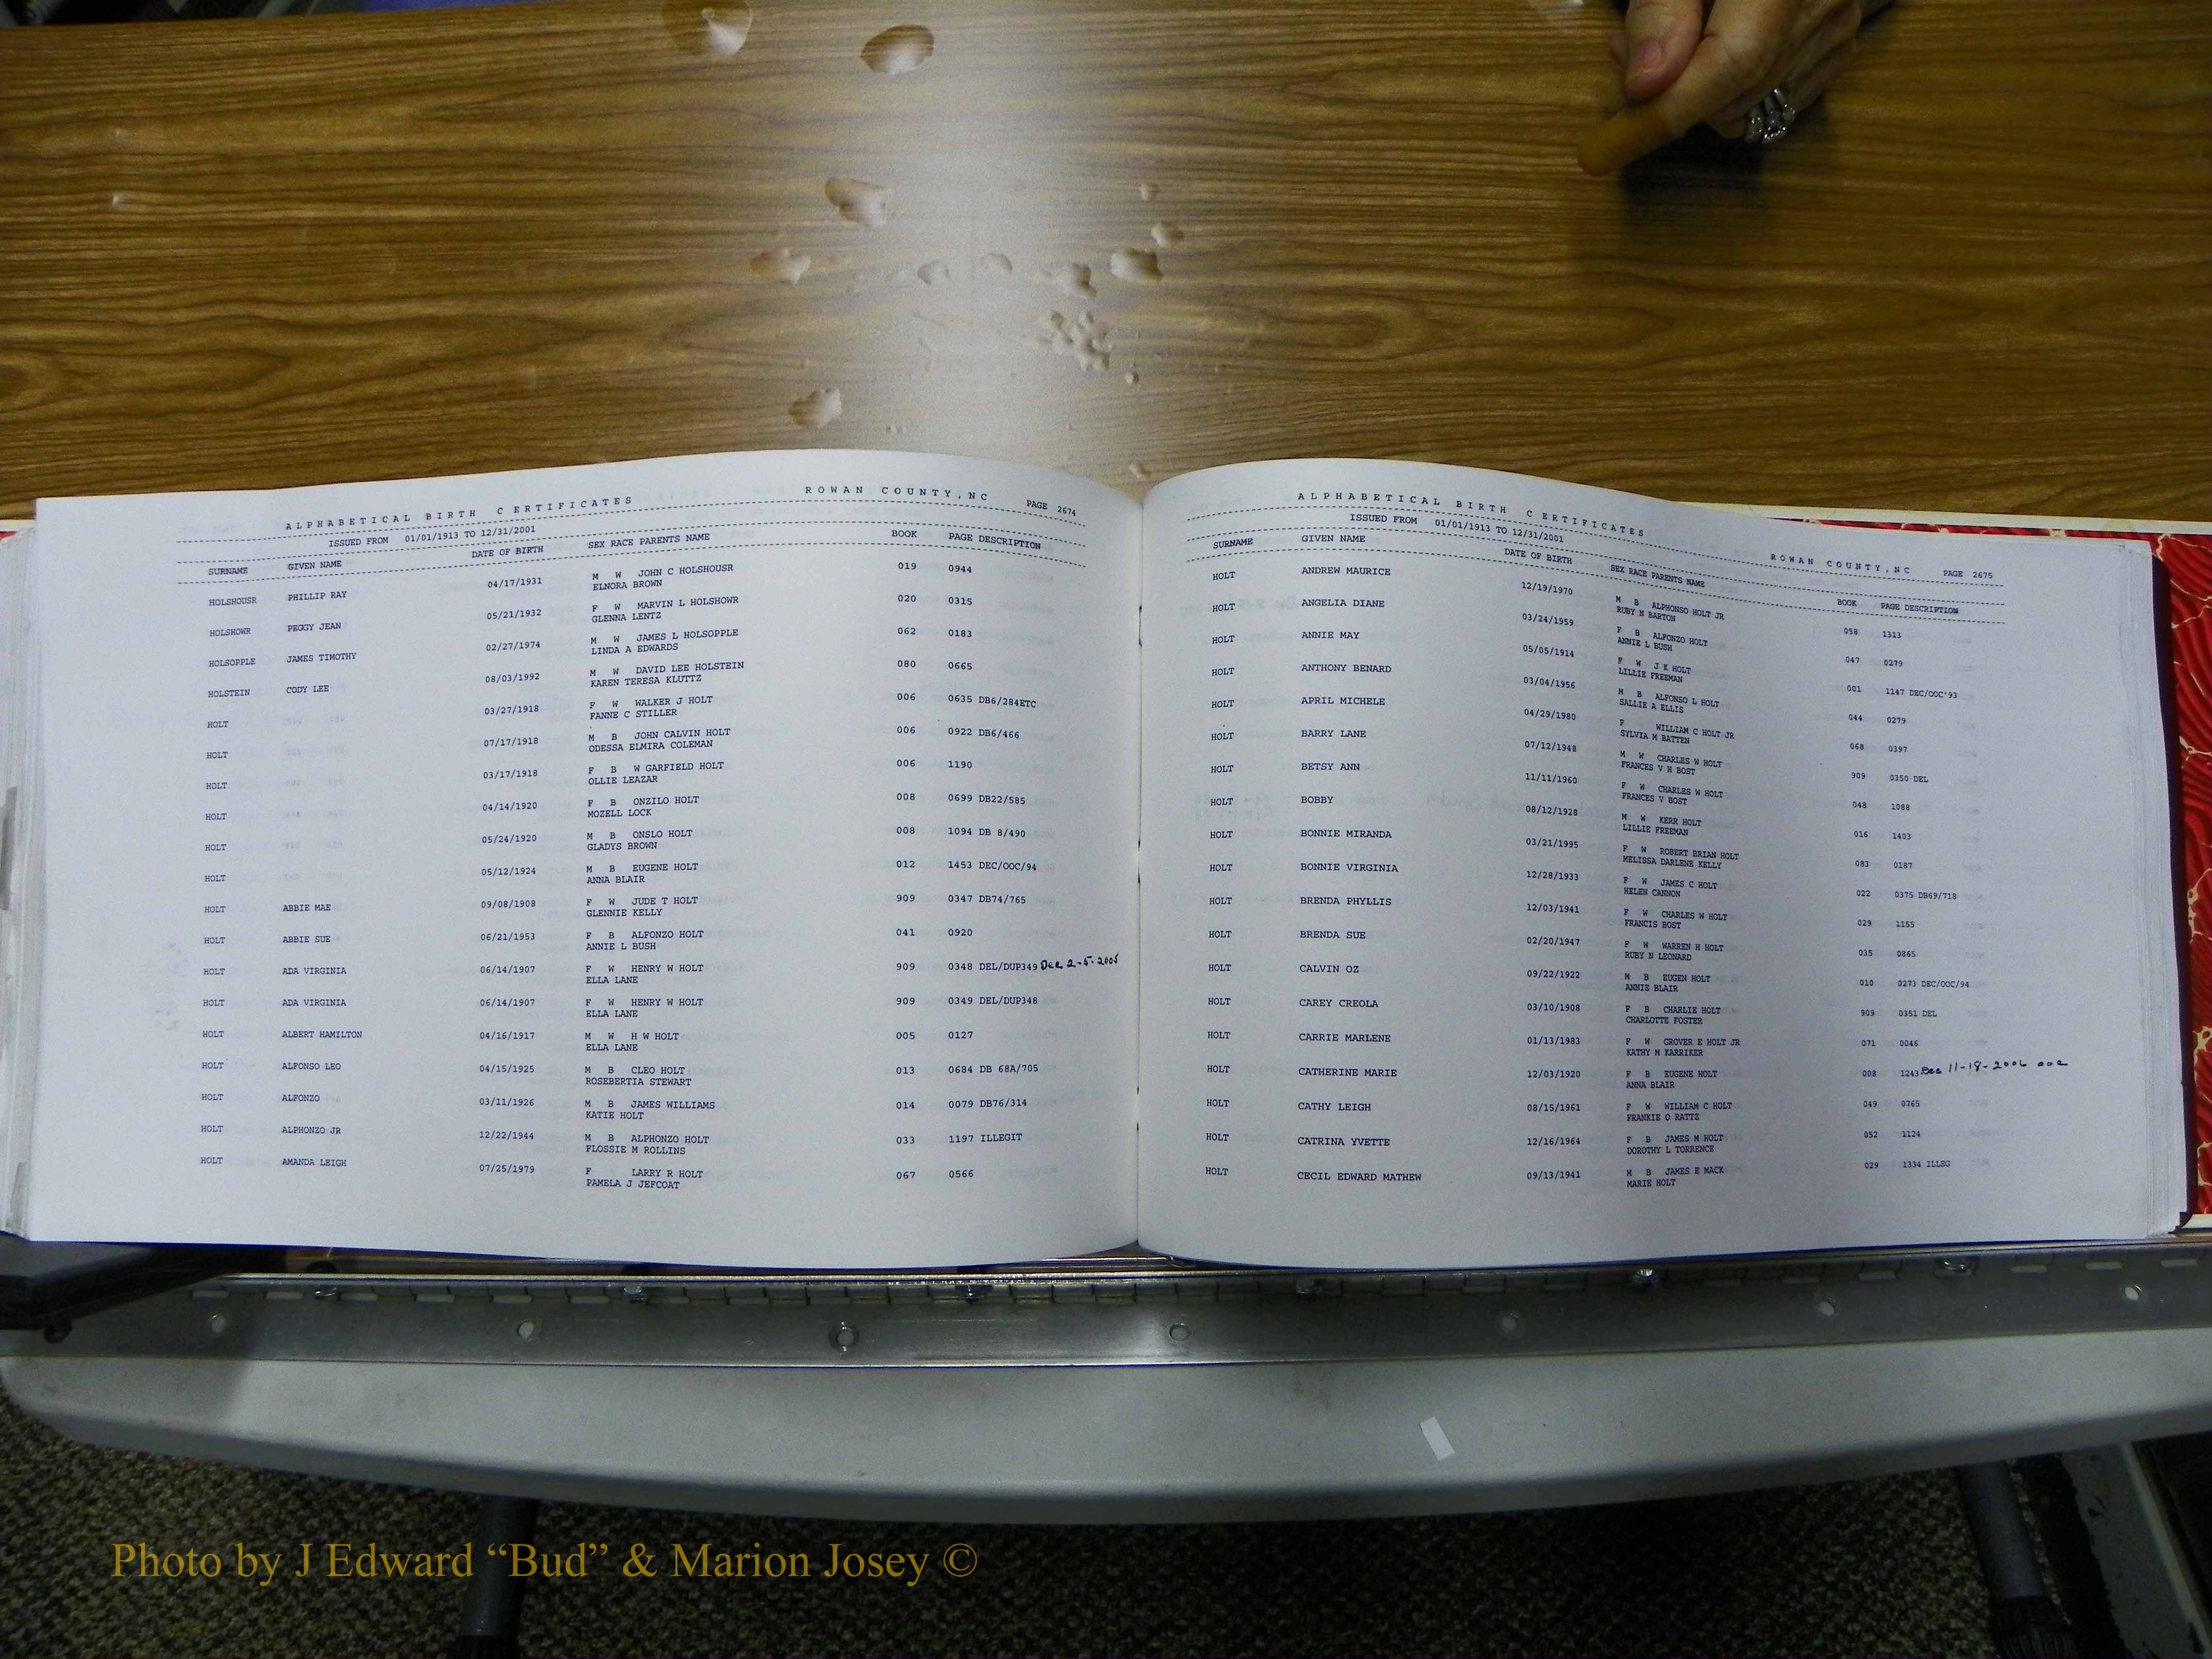 ALPHABETICAL BIRTH CERTIFICATES ROWAN COUNTY,NC PAGE 2674
ISSUED FROM 01/01/1913 TO 12/31/2001
SURNAME GIVEN NAME DATE OF BIRTH SEX RACE PARENTS NAME BOOK PAGE DESCRIPTION
HOLSHOUSR PHILLIP RAY 04/17/1931 M W JOHN C HOLSHOUSR 019 0944
ELNORA BROWN
HOLSHOWR PEGGY JEAN 05/21/1932 F W MARVIN L HOLSHOWR 020 0315
GLENNA LENTZ
HOLSOPPLE JAMES TIMOTHY 02/27/1974 M W JAMES L HOLSOPPLE 062 0183
LINDA A EDWARDS
HOLSTEIN CODY LEE 08/03/1992 M W DAVID LEE HOLSTEIN 080 0665
KAREN TERESA KLUTTZ
HOLT 03/27/1918 F W WALKER J HOLT 006 0635 DB6/284ETC
FANNE C STILLER
HOLT 07/17/1918 M B JOHN CALVIN HOLT 006 0922 DB6/466
ODESSA ELMIRA COLEMAN
HOLT 03/17/1918 F B W GARFIELD HOLT 006 1190
OLLIE LEAZAR
HOLT 04/14/1920 F B ONZILO HOLT 008 0699 DB22/585
MOZELL LOCK
HOLT 05/24/1920 M B ONSLO HOLT 008 1094 DB 8/490
GLADYS BROWN
HOLT 05/12/1924 M B EUGENE HOLT 012 1453 DEC/OOC/94
ANNA BLAIR
HOLT ABBIE MAE 09/08/1908 F W JUDE T HOLT 909 0347 DB74/765
GLENNIE KELLY
HOLT ABBIE SUE 06/21/1953 F B ALFONZO HOLT 041 0920
ANNIE L BUSH
HOLT ADA VIRGINIA 06/14/1907 F W HENRY W HOLT 909 0348 DEL/DUP349 Dec 2-5-2005
ELLA LANE
HOLT ADA VIRGINIA 06/14/1907 F W HENRY W HOLT 909 0349 DEL/DUP348
ELLA LANE
HOLT ALBERT HAMILTON 04/16/1917 M W H W HOLT 005 0127
ELLA LANE
HOLT ALFONSO LEO 04/15/1925 M B CLEO HOLT 013 0684 DB 68A/705
ROSEBERTIA STEWART
HOLT ALFONZO 03/11/1926 M B JAMES WILLIAMS 014 0079 DB76/314
KATIE HOLT
HOLT ALPHONZO JR 12/22/1944 M B ALPHONZO HOLT 033 1197 ILLEGIT
FLOSSIE M ROLLINS
HOLT AMANDA LEIGH 07/25/1979 F LARRY R HOLT 067 0566
PAMELA J JEFCOAT
ALPHABETICAL BIRTH CERTIFICATES ROWAN COUNTY,NC PAGE 2675
ISSUED FROM 01/01/1913 TO 12/31/2001
SURNAME GIVEN NAME DATE OF BIRTH SEX RACE PARENTS NAME BOOK PAGE DESCRIPTION
HOLT ANDREW MAURICE 12/19/1970 M B ALPHONSO HOLT JR 058 1313
RUBY N BARTON
HOLT ANGELIA DIANE 03/24/1959 F B ALFONZO HOLT 047 0279
ANNIE L BUSH
HOLT ANNIE MAY 05/05/1914 F W J K HOLT 001 1147 DEC/OOC'93
LILLIE FREEMAN
HOLT ANTHONY BENARD 03/04/1956 M B ALFONSO L HOLT 044 0279
SALLIE A ELLIS
HOLT APRIL MICHELE 04/29/1980 F WILLIAM C HOLT JR 068 0397
SYLVIA M BATTEN
HOLT BARRY LANE 07/12/1948 M W CHARLES W HOLT 909 0350 DEL
FRANCES V H BOST
HOLT BETSY ANN 11/11/1960 F W CHARLES W HOLT 048 1088
FRANCES V BOST
HOLT BOBBY 08/12/1928 M W KERR HOLT 016 1403
LILLIE FREEMAN
HOLT BONNIE MIRANDA 03/21/1995 F W ROBERT BRIAN HOLT 083 0187
MELISSA DARLENE KELLY
HOLT BONNIE VIRGINIA 12/28/1933 F W JAMES C HOLT 022 0375 DB69/718
HELEN CANNON
HOLT BRENDA PHYLLIS 12/03/1941 F W CHARLES W HOLT 029 1155
FRANCIS BOST
HOLT BRENDA SUE 02/20/1947 F W WARREN H HOLT 035 0865
RUBY N LEONARD
HOLT CALVIN OZ 09/22/1922 M B EUGEN HOLT 010 0273 DEC/OOC/94
ANNIE BLAIR
HOLT CAREY CREOLA 03/10/1908 F B CHARLIE HOLT 909 0351 DEL
CHARLOTTE FOSTER
HOLT CARRIE MARLENE 01/13/1983 F W GROVER E HOLT JR 071 0046
KATHY M KARRIKER
HOLT CATHERINE MARIE 12/03/1920 F B EUGENE HOLT 008 1243 Dec 11-18-2006 OOC
ANNA BLAIR
HOLT CATHY LEIGH 08/15/1961 F W WILLIAM C HOLT 049 0765
FRANKIE O RATTZ
HOLT CATRINA YVETTE 12/16/1964 F B JAMES M HOLT 052 1124
DOROTHY L TORRENCE
HOLT CECIL EDWARD MATHEW 09/13/1941 M B JAMES E MACK 029 1334 ILLEG
MARIE HOLT
Photo by J Edward “Bud” & Marion Josey ©